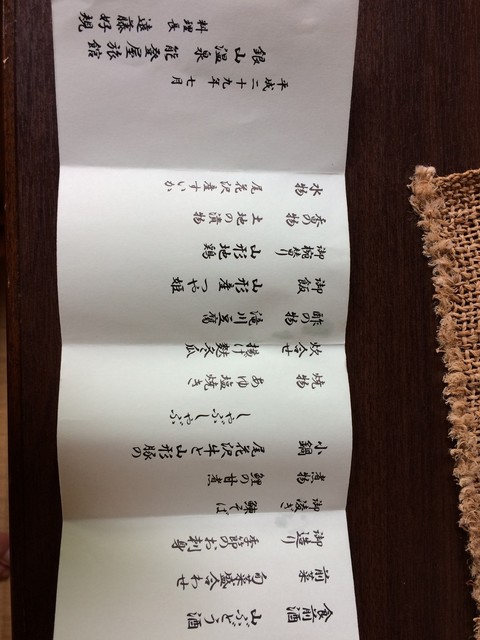 食前酒 山ぶどう酒
前菜 旬菜盛合わせ
御造り 季節のお刺身
御凌ぎ 鰊そば
煮物 鯉の甘煮
小鍋 尾花沢牛と山形豚の
しゃぶしゃぶ
焼物 あゆ塩焼き
炊合せ 揚げ麩冬瓜
酢の物 滝川豆腐
御飯 山形産つや姫
御椀替り 山形地鶏
香の物 土地の漬物
水物 尾花沢産すいか
平成二十九年七月
銀山温泉能登屋旅館
料理長 遠藤好規